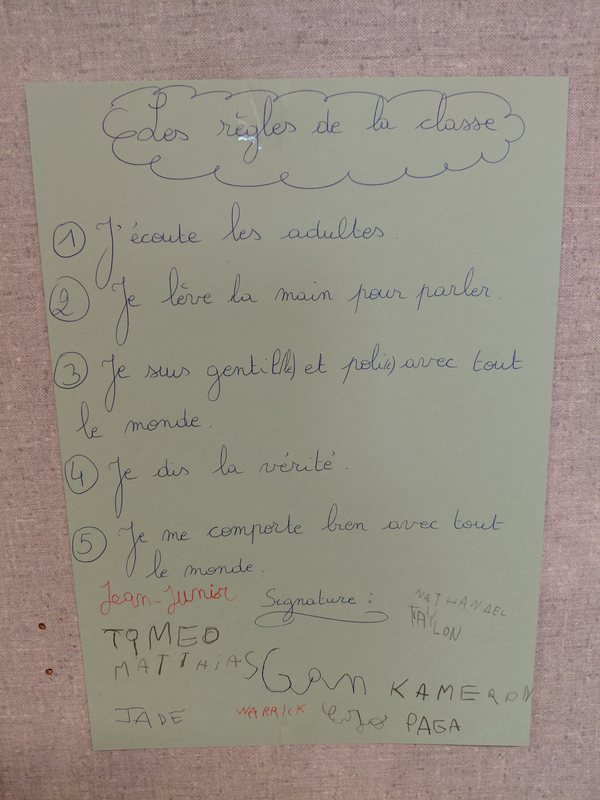 Les règles de la classe
① J'écoute les adultes.
② Je lève la main pour parler.
③ Je suis gentil(le) et poli(e) avec tout
le monde.
④ Je dis la vérité.
⑤ Je me comporte bien avec tout
le monde.
Jean-Junior
Signature :
NATHANAEL
TAYLON
TYMEO
MATTHIAS
Gan
KAMERON
JADE
WARRICK
PAGA